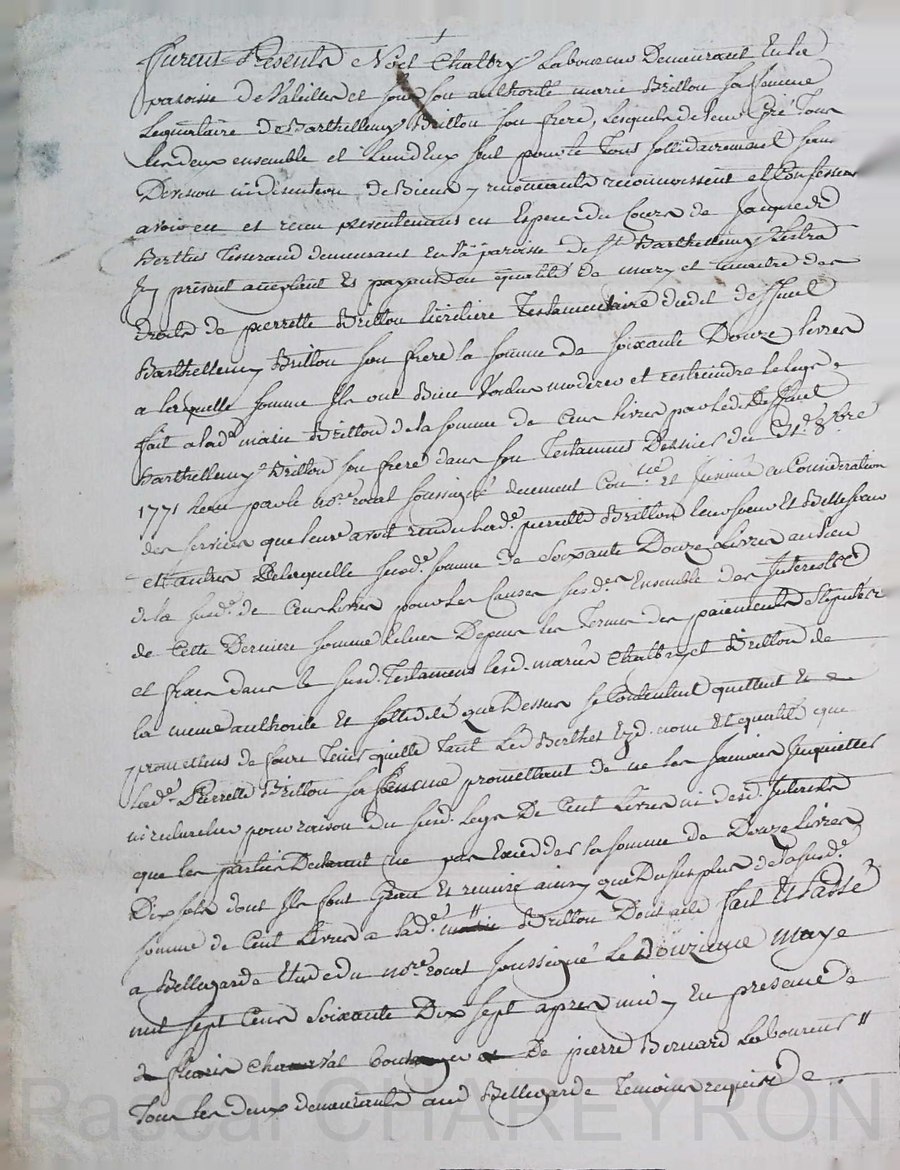 Furent Presents Noel Chalbry Laboureur Demeurant En la
paroisse de Valeille et sous son authorité marie Brillon sa femme
Legataire de Barthellemy Brillon son frere, Lesquels de leur Gré Tous
Les deux ensemble et L'un d'Eux seul pour le Tout sollidairement sans
Division ni discution de Biens y renonçants reconnoissent et Confessent
avoir eu et recu presentement en Especes du Cours de Jacques
Berthet Tisserand demeurant En la paroisse de St Barthellemy Lestra
Jcy present acceptant Et payant en qualité de mary et maitre des
droits de pierrette Brillon heritiere Testamentaire dudit deffunt
Barthellemy Brillon son frere la somme de soixante Douze livres
a laquelle somme Ils ont Bien Voulu moderer et restreindre le legs
fait a lad.e marie Brillon de la somme de Cent livres par led. Deffunt
Barthellemy Brillon son frere dans son Testament Dernier du 8bre
1771 recu par le no.re royal soussigné duement Con.lé Et Jnsinué en Consideration
des services que leur avoit rendu lad.e pierrette Brillon leur soeur Et Bellesoeur
et autres De laquelle susd.e somme de soixante Douze Livres au lieu
de la susd.e de Cent livres pour les Causes susd.es Ensemble des Interests
de Cette Derniere somme Echus Depuis les Termes des paiements stipulés
et fixés dans le susd. Testament lesd. mariés Chalbry et Brillon de
la meme authorité Et sollidité que Dessus se Contentent quittent Et
promettent de faire Tenir quitte Tant led. Berthet Esd. nom Et qualité que
lad.e Pierrette Brillon sa femme promettant de ne les Jamais Jnquietter
ni rechercher pour raison du susd. legs De Cent Livres ni desd. Interests
que les parties Declarent ne pas Exceder la somme de Douze Livres
Dix sols dont Ils font Grace Et remise ainsy que Du surplus de la susd.e
somme de Cent Livres a lad.e Brillon Dont acte fait Et Passé
a Bellegarde Etude du no.re royal soussigné Le Douzieme may
mil sept Cent soixante Dix sept apres midy En presence de
fleuris De pierre Bernard Laboureur
Tous les deux demeurants aud. Bellegarde Temoins requis
Pascal CHAREYRON